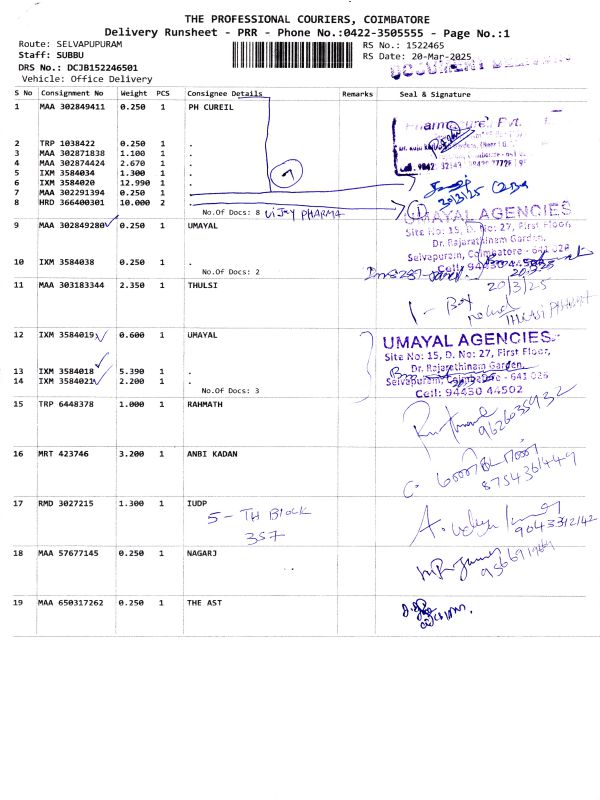 THE PROFESSIONAL COURIERS, COIMBATORE
Delivery Runsheet - PRR - Phone No.:0422-3505555 - Page No.:1
Route: SELVAPUPURAM
RS No.: 1522465
Staff: SUBBU
RS Date: 20-Mar-2025
DRS No.: DCJB152246501
DOCUMENT
Vehicle: Office Delivery
S No Consignment No Weight PCS Consignee Details Remarks Seal & Signature
1 MAA 302849411 0.250 1 PH CUREIL
2 TRP 1038422 0.250 1 .
3 MAA 302871838 1.100 1 .
4 MAA 302874424 2.670 1 .
5 IXM 3584034 1.300 1 .
6 IXM 3584020 12.990 1 .
7 MAA 302291394 0.250 1 .
8 HRD 366400301 10.000 2 .
7
20/3/25
1
No.Of Docs: 8 VIJAY PHARMA
9 MAA 302849280 0.250 1 UMAYAL
UMAYAL AGENCIES
Site No: 15, D. No: 27, First Floor,
Dr. Rajarathinam Garden,
Selvapuram, Coimbatore - 641 026
Cell: 94430 44502
10 IXM 3584038 0.250 1 .
No.Of Docs: 2
11 MAA 303183344 2.350 1 THULSI
20/3/25
1 - Box
12 IXM 3584019 0.600 1 UMAYAL
UMAYAL AGENCIES
Site No: 15, D. No: 27, First Floor,
Dr. Rajarethinam Garden,
Selvapuram, Coimbatore - 641 026
Cell: 94430 44502
13 IXM 3584018 5.390 1 .
14 IXM 3584021 2.200 1 .
No.Of Docs: 3
15 TRP 6448378 1.000 1 RAHMATH
9626035932
16 MRT 423746 3.200 1 ANBI KADAN
8754361449
17 RMD 3027215 1.300 1 IUDP
5 - TH BLOCK
357
9043312142
18 MAA 57677145 0.250 1 NAGARJ
19 MAA 650317262 0.250 1 THE AST